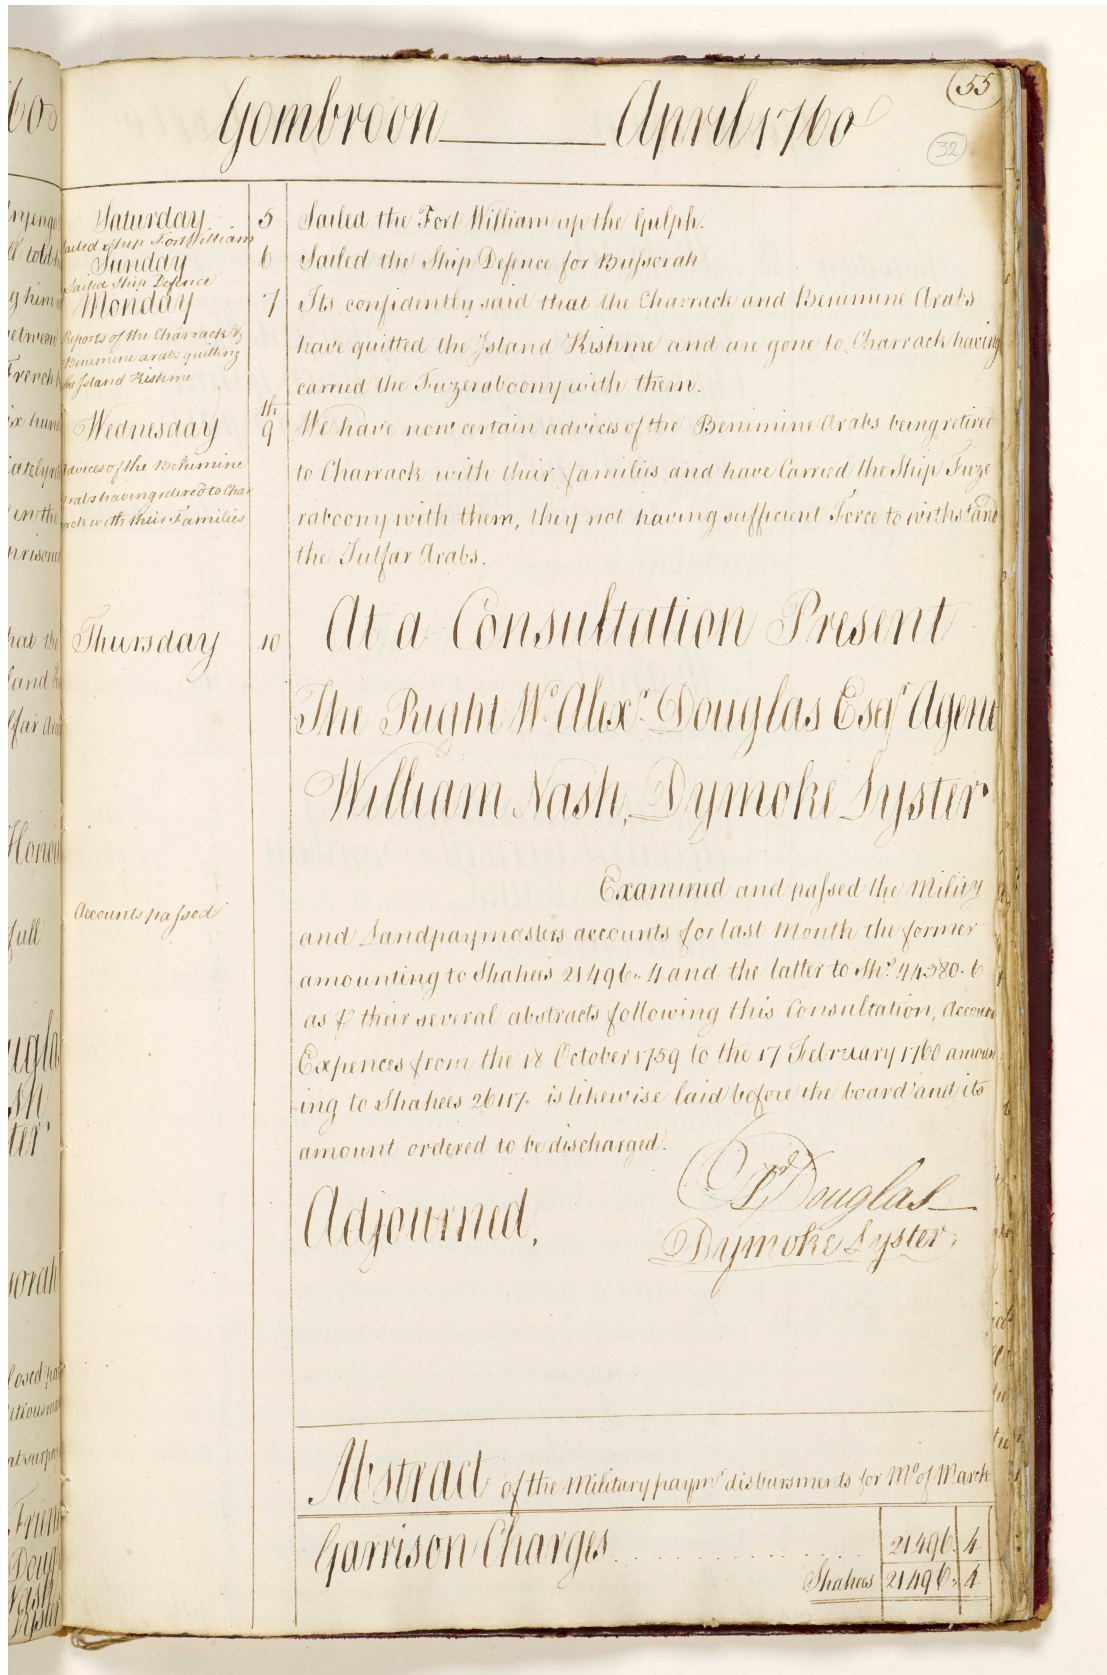 55
Gombroon April 1760
32
Saturday 5 Sailed the Fort William up the Gulph.
Sailed Ship Fort William
Sunday 6 Sailed the Ship Defence for Bussorah
Sailed Ship Defence
Monday 7 Its confidently said that the Charrack and Benimine Arabs
Reports of the Charrack &
have quitted the Island Kishme and are gone to Charrack having
Benimine arabs quitting
the Island Kishme
carried the Fuzeraboony with them.
Wednesday 9th We have now certain advices of the Benimine Arabs being retired
Advices of the Benimine
to Charrack with their families and have Carried the Ship Fuze
Arabs having retired to Char
rack with their Families
raboony with them, they not having sufficient Force to withstand
the Julfar Arabs.
Thursday 10 At a Consultation Present
The Right Wo. Alexr. Douglas Esqr Agent
William Nash, Dymoke Lyster
Accounts passed
Examined and passed the Military
and Landpaymasters accounts for last Month the former
amounting to Shahees 21496. 4 and the latter to Shs. 44380. 6
as ⅌ their several abstracts following this Consultation, Account
Expences from the 18 October 1759 to the 17 February 1760 amount
ing to Shahees 26117. is likewise laid before the board and its
amount ordered to be discharged.
Adjourned,
Douglas
Dymoke Lyster
Abstract of the Military paymrs disbursments for Mo. of March
Garrison Charges 21496. 4
Shahees 21496. 4